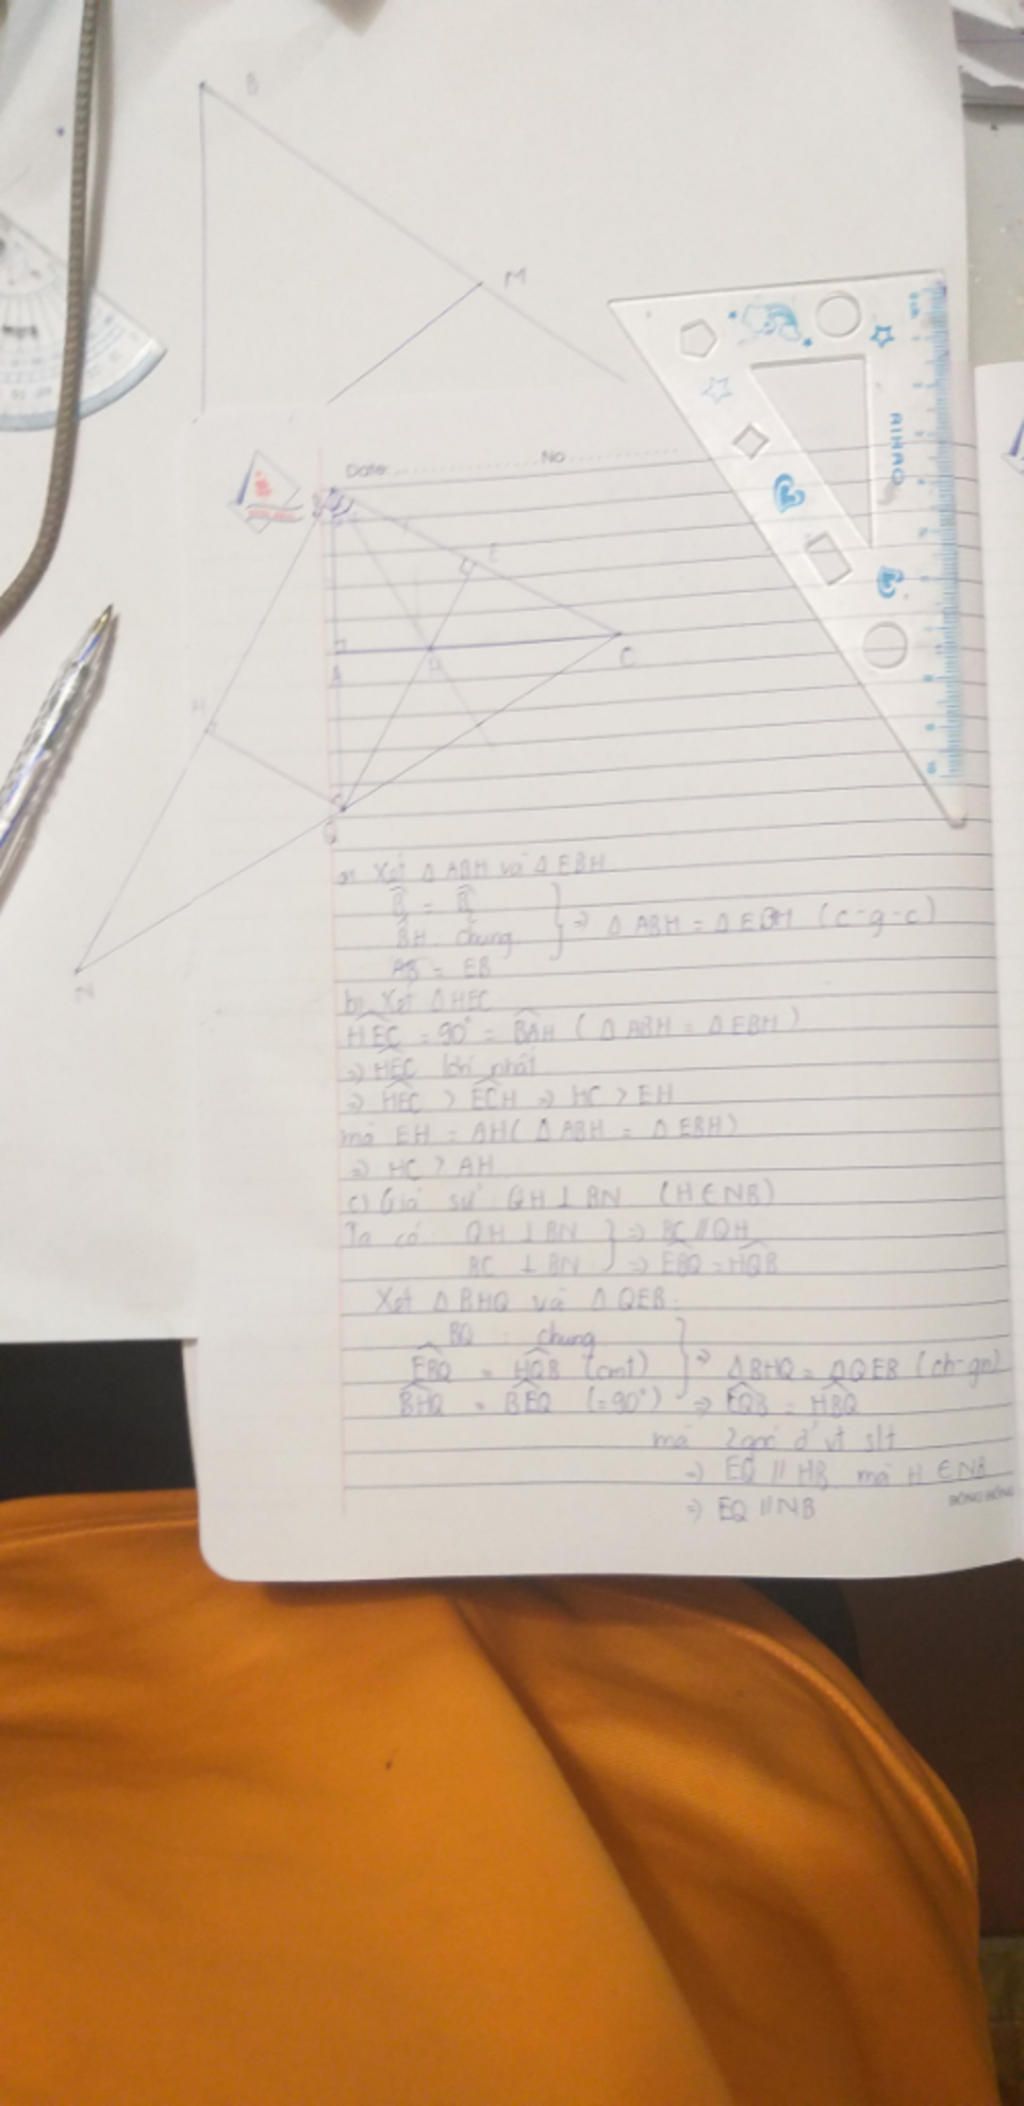 B
M
Date: No
E
C
A
H
H
Q
N
a) Xét Δ ABH và Δ EBH
B̂ = B̂
BH chung } ⇒ Δ ABH = Δ EBH (c-g-c)
AB = EB
b) Xét Δ HEC
HEC = 90° = BAH (Δ ABH = Δ EBH)
⇒ HEC lớn nhất
⇒ HEC > ECH ⇒ HC > EH
mà EH = AH (Δ ABH = Δ EBH)
⇒ HC > AH
c) Giả sử QH ⊥ BN (H ∈ NB)
Ta có QH ⊥ BN } ⇒ BC // QH
BC ⊥ BN ⇒ EBQ = HQB
Xét Δ BHQ và Δ QEB:
BQ : chung
EBQ = HQB (cmt) } ⇒ Δ BHQ = Δ QEB (ch-gn)
BHQ = BEQ (=90°) ⇒ EQB = HBQ
mà 2 góc ở vt slt
⇒ EQ // HB mà H ∈ NB
⇒ EQ // NB
AIHAO